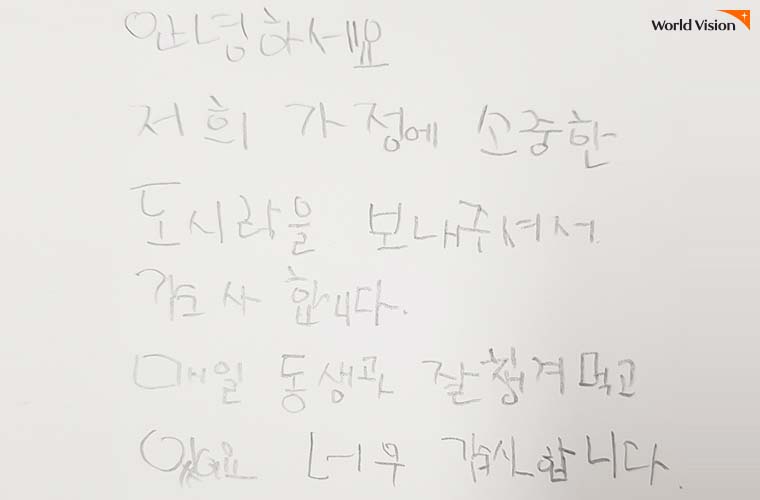 World Vision
안녕하세요
저희 가정에 소중한
도시락을 보내주셔서
감사 합니다.
매일 동생과 잘 챙겨 먹고
있어요 너무 감사합니다.